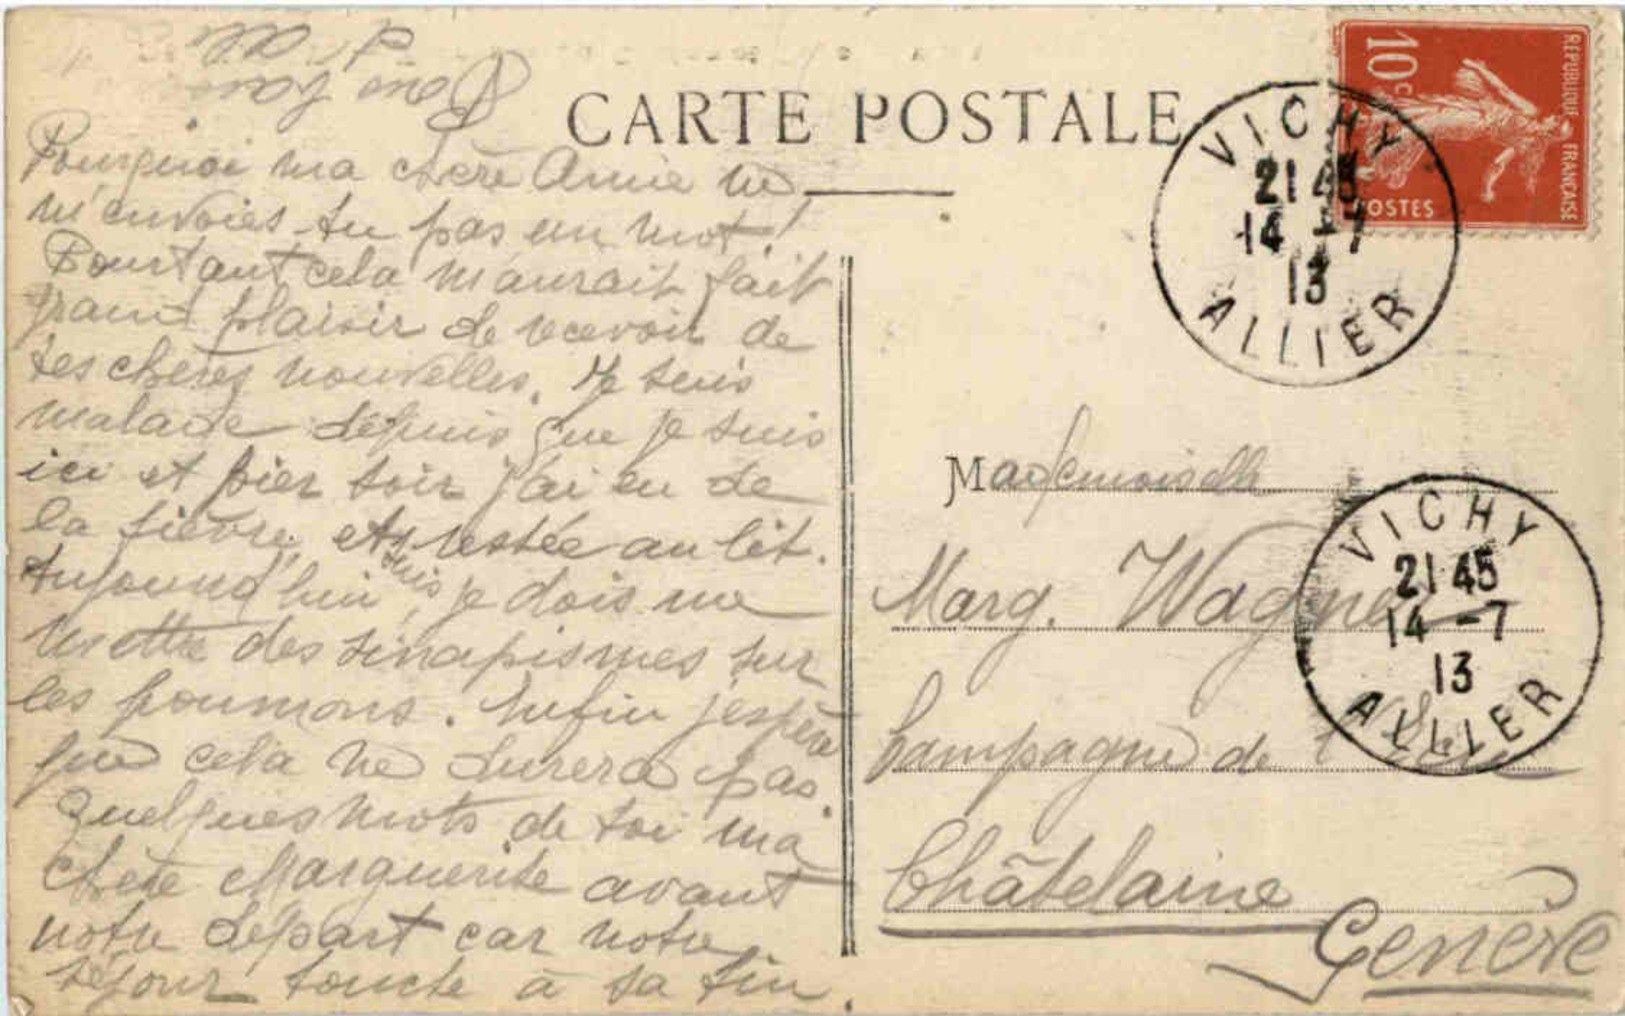 CARTE POSTALE
Pourquoi ma chère Amie ne
m'envoies-tu pas un mot!
Pourtant cela m'aurait fait
grand plaisir de recevoir de
tes chères nouvelles. Je suis
malade depuis que je suis
ici et hier soir j'ai eu de
la fièvre et restée au lit.
Aujourd'hui je dois me
mettre des sinapismes sur
les poumons. Enfin j'espère
que cela ne durera pas.
Quelques mots de toi ma
chère Marguerite avant
notre départ car notre
séjour touche à sa fin.
RÉPUBLIQUE FRANÇAISE
10c
POSTES
VICHY
21 45
14 -7
13
ALLIER
Mademoiselle
Marg. Wagner
Campagne de
Châtelaine
Genève
VICHY
21 45
14 -7
13
ALLIER